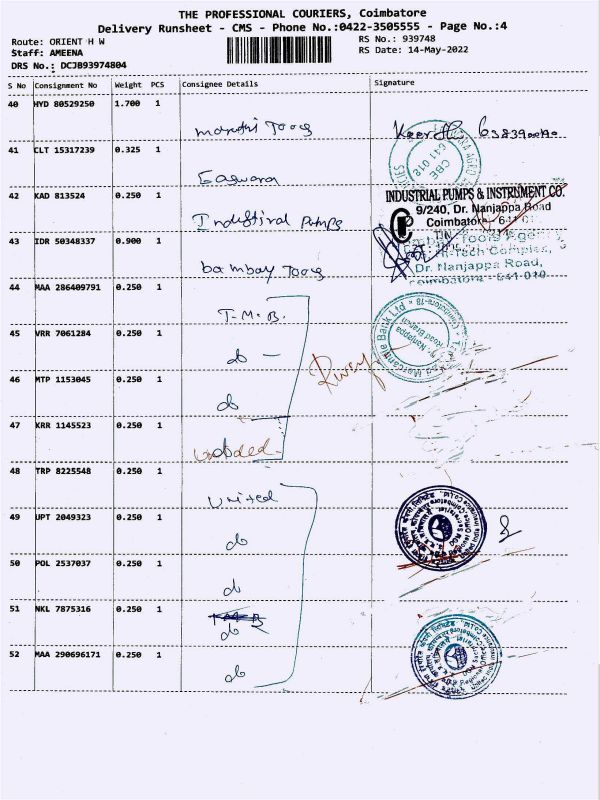 THE PROFESSIONAL COURIERS, Coimbatore
Delivery Runsheet - CMS - Phone No.:0422-3505555 - Page No.:4
Route: ORIENT H W
Staff: AMEENA
DRS No.: DCJB93974804
RS No.: 939748
RS Date: 14-May-2022
S No Consignment No Weight PCS Consignee Details Signature
40 HYD 80529250 1.700 1
41 CLT 15317239 0.325 1
Easwara
CBE
641 012
42 KAD 813524 0.250 1
Industiral Pumps
INDUSTRIAL PUMPS & INSTRUMENT CO.
9/240, Dr. Nanjappa Road
Coimbatore - 641
43 IDR 50348337 0.900 1
bombay Toors
Hi-Tech Complex,
Dr. Nanjappa Road,
Coimbatore - 641 018
44 MAA 286409791 0.250 1
T.M.B.
45 VRR 7061284 0.250 1
do -
46 MTP 1153045 0.250 1
do
47 KRR 1145523 0.250 1
48 TRP 8225548 0.250 1
United
49 UPT 2049323 0.250 1
do
50 POL 2537037 0.250 1
do
51 NKL 7875316 0.250 1
do
52 MAA 290696171 0.250 1
do